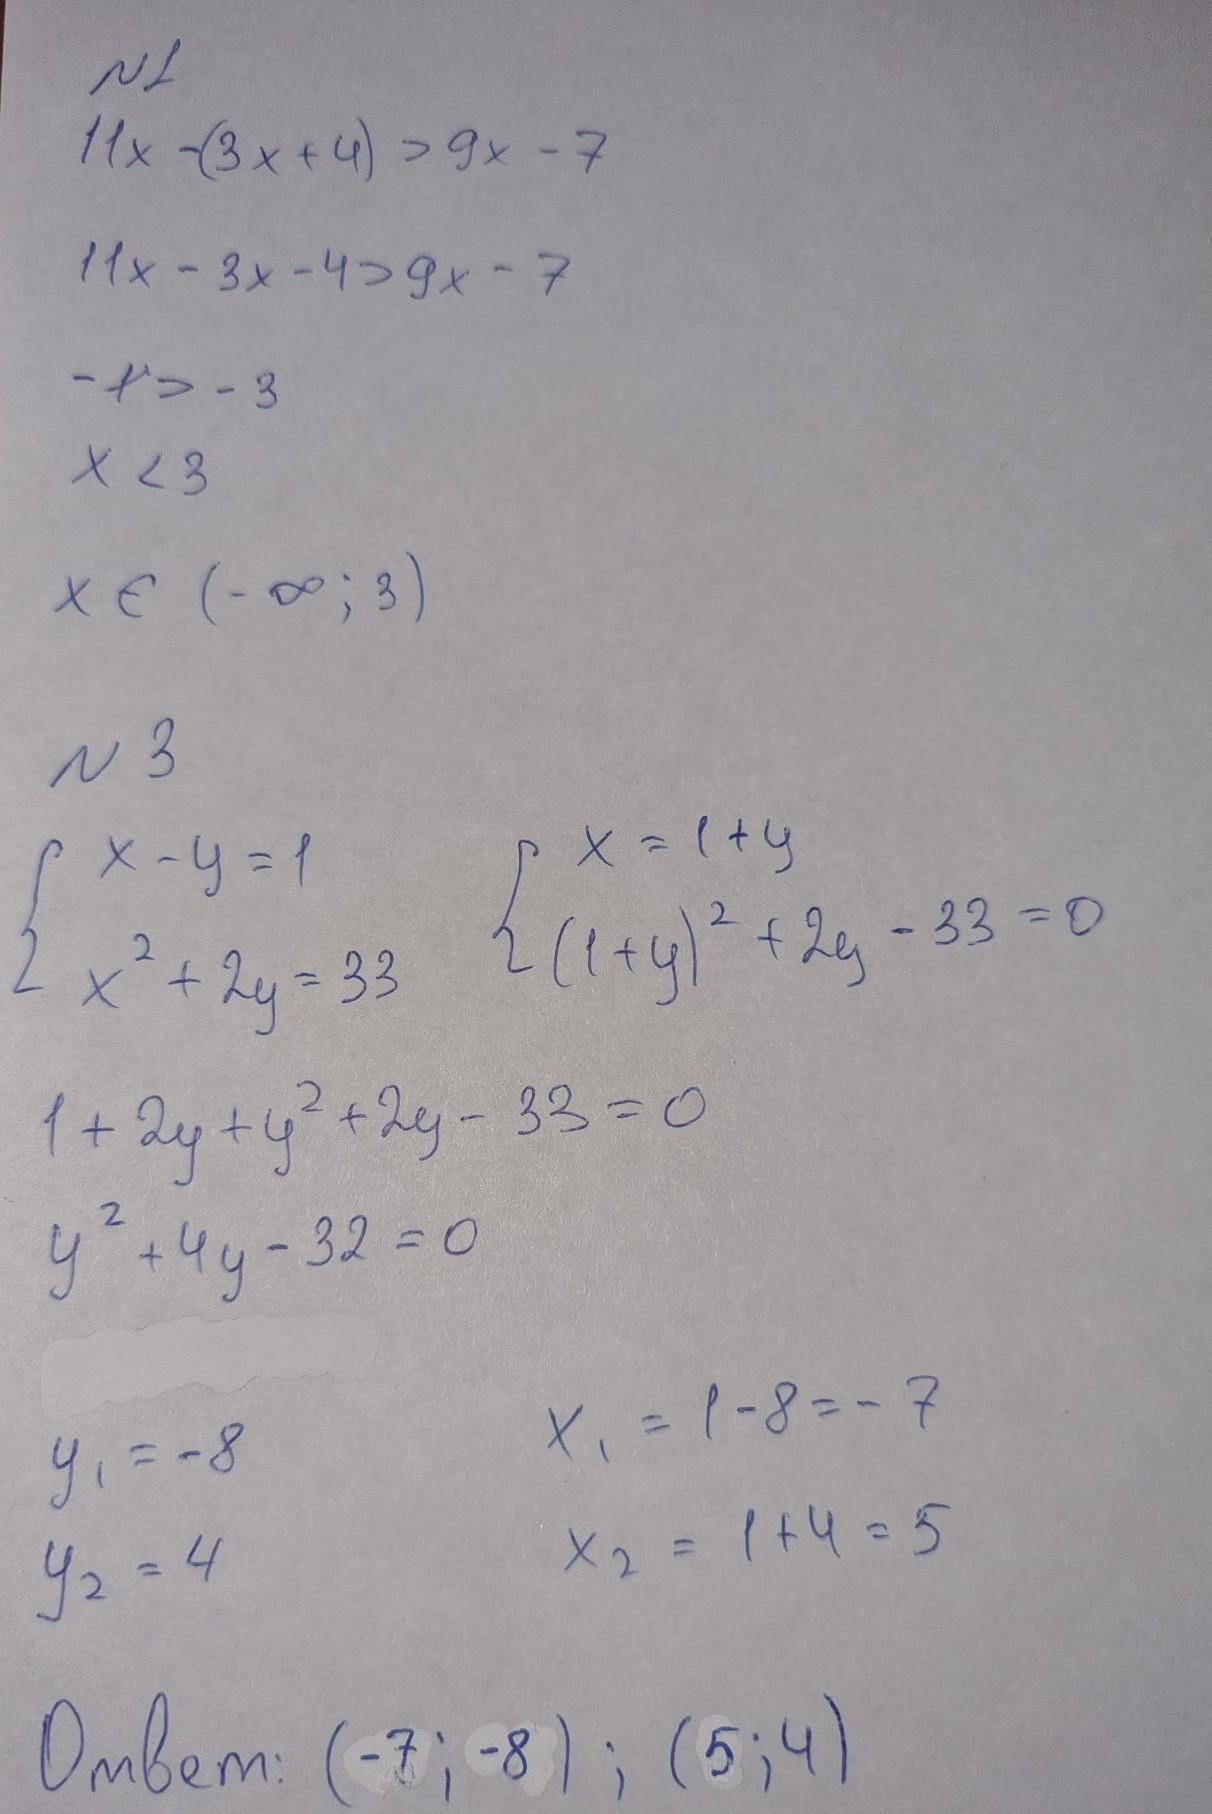 N1
11x-(3x+4)>9x-7
11x-3x-4>9x-7
-x>-3
x<3
x∈(-∞;3)
N3
{x-y=1 {x=1+y
x²+2y=33 (1+y)²+2y-33=0
1+2y+y²+2y-33=0
y²+4y-32=0
y₁=-8 x₁=1-8=-7
y₂=4 x₂=1+4=5
Ответ: (-7;-8);(5;4)